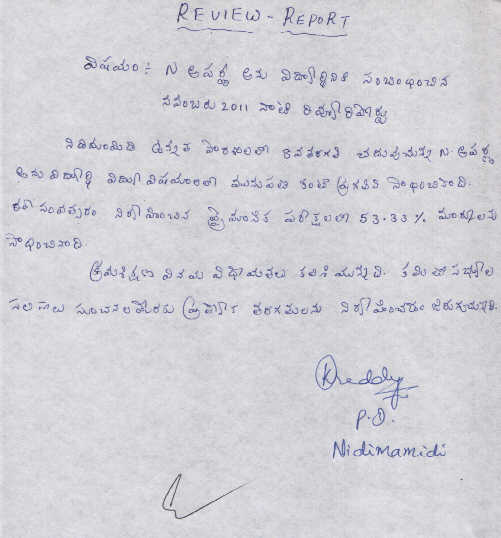 REVIEW - REPORT
విషయం :- N అపర్ణ అను విద్యార్థినికి సంబంధించిన
నవంబరు 2011 నాటి రివ్యూ రిపోర్టు
నిడిమామిడి ఉన్నత పాఠశాలలో 8వతరగతి చదువుచున్న N. అపర్ణ
అను విద్యార్థి విద్యా విషయాలలో మునుపటి కంటే ప్రగతిని సాధించినది.
గత సంవత్సరం నిర్వహించిన త్రైమాసిక పరీక్షలలో 53.33% మార్కులను
సాధించినది.
క్రమశిక్షణ వినయ విధేయతలు కలిగి యున్నది. కమిటీ సభ్యుల
సలహాలు సూచనల మేరకు ప్రత్యేక తరగతులను నిర్వహించడం జరుగుచున్నది.
KReddy
P.D.
Nidimamidi